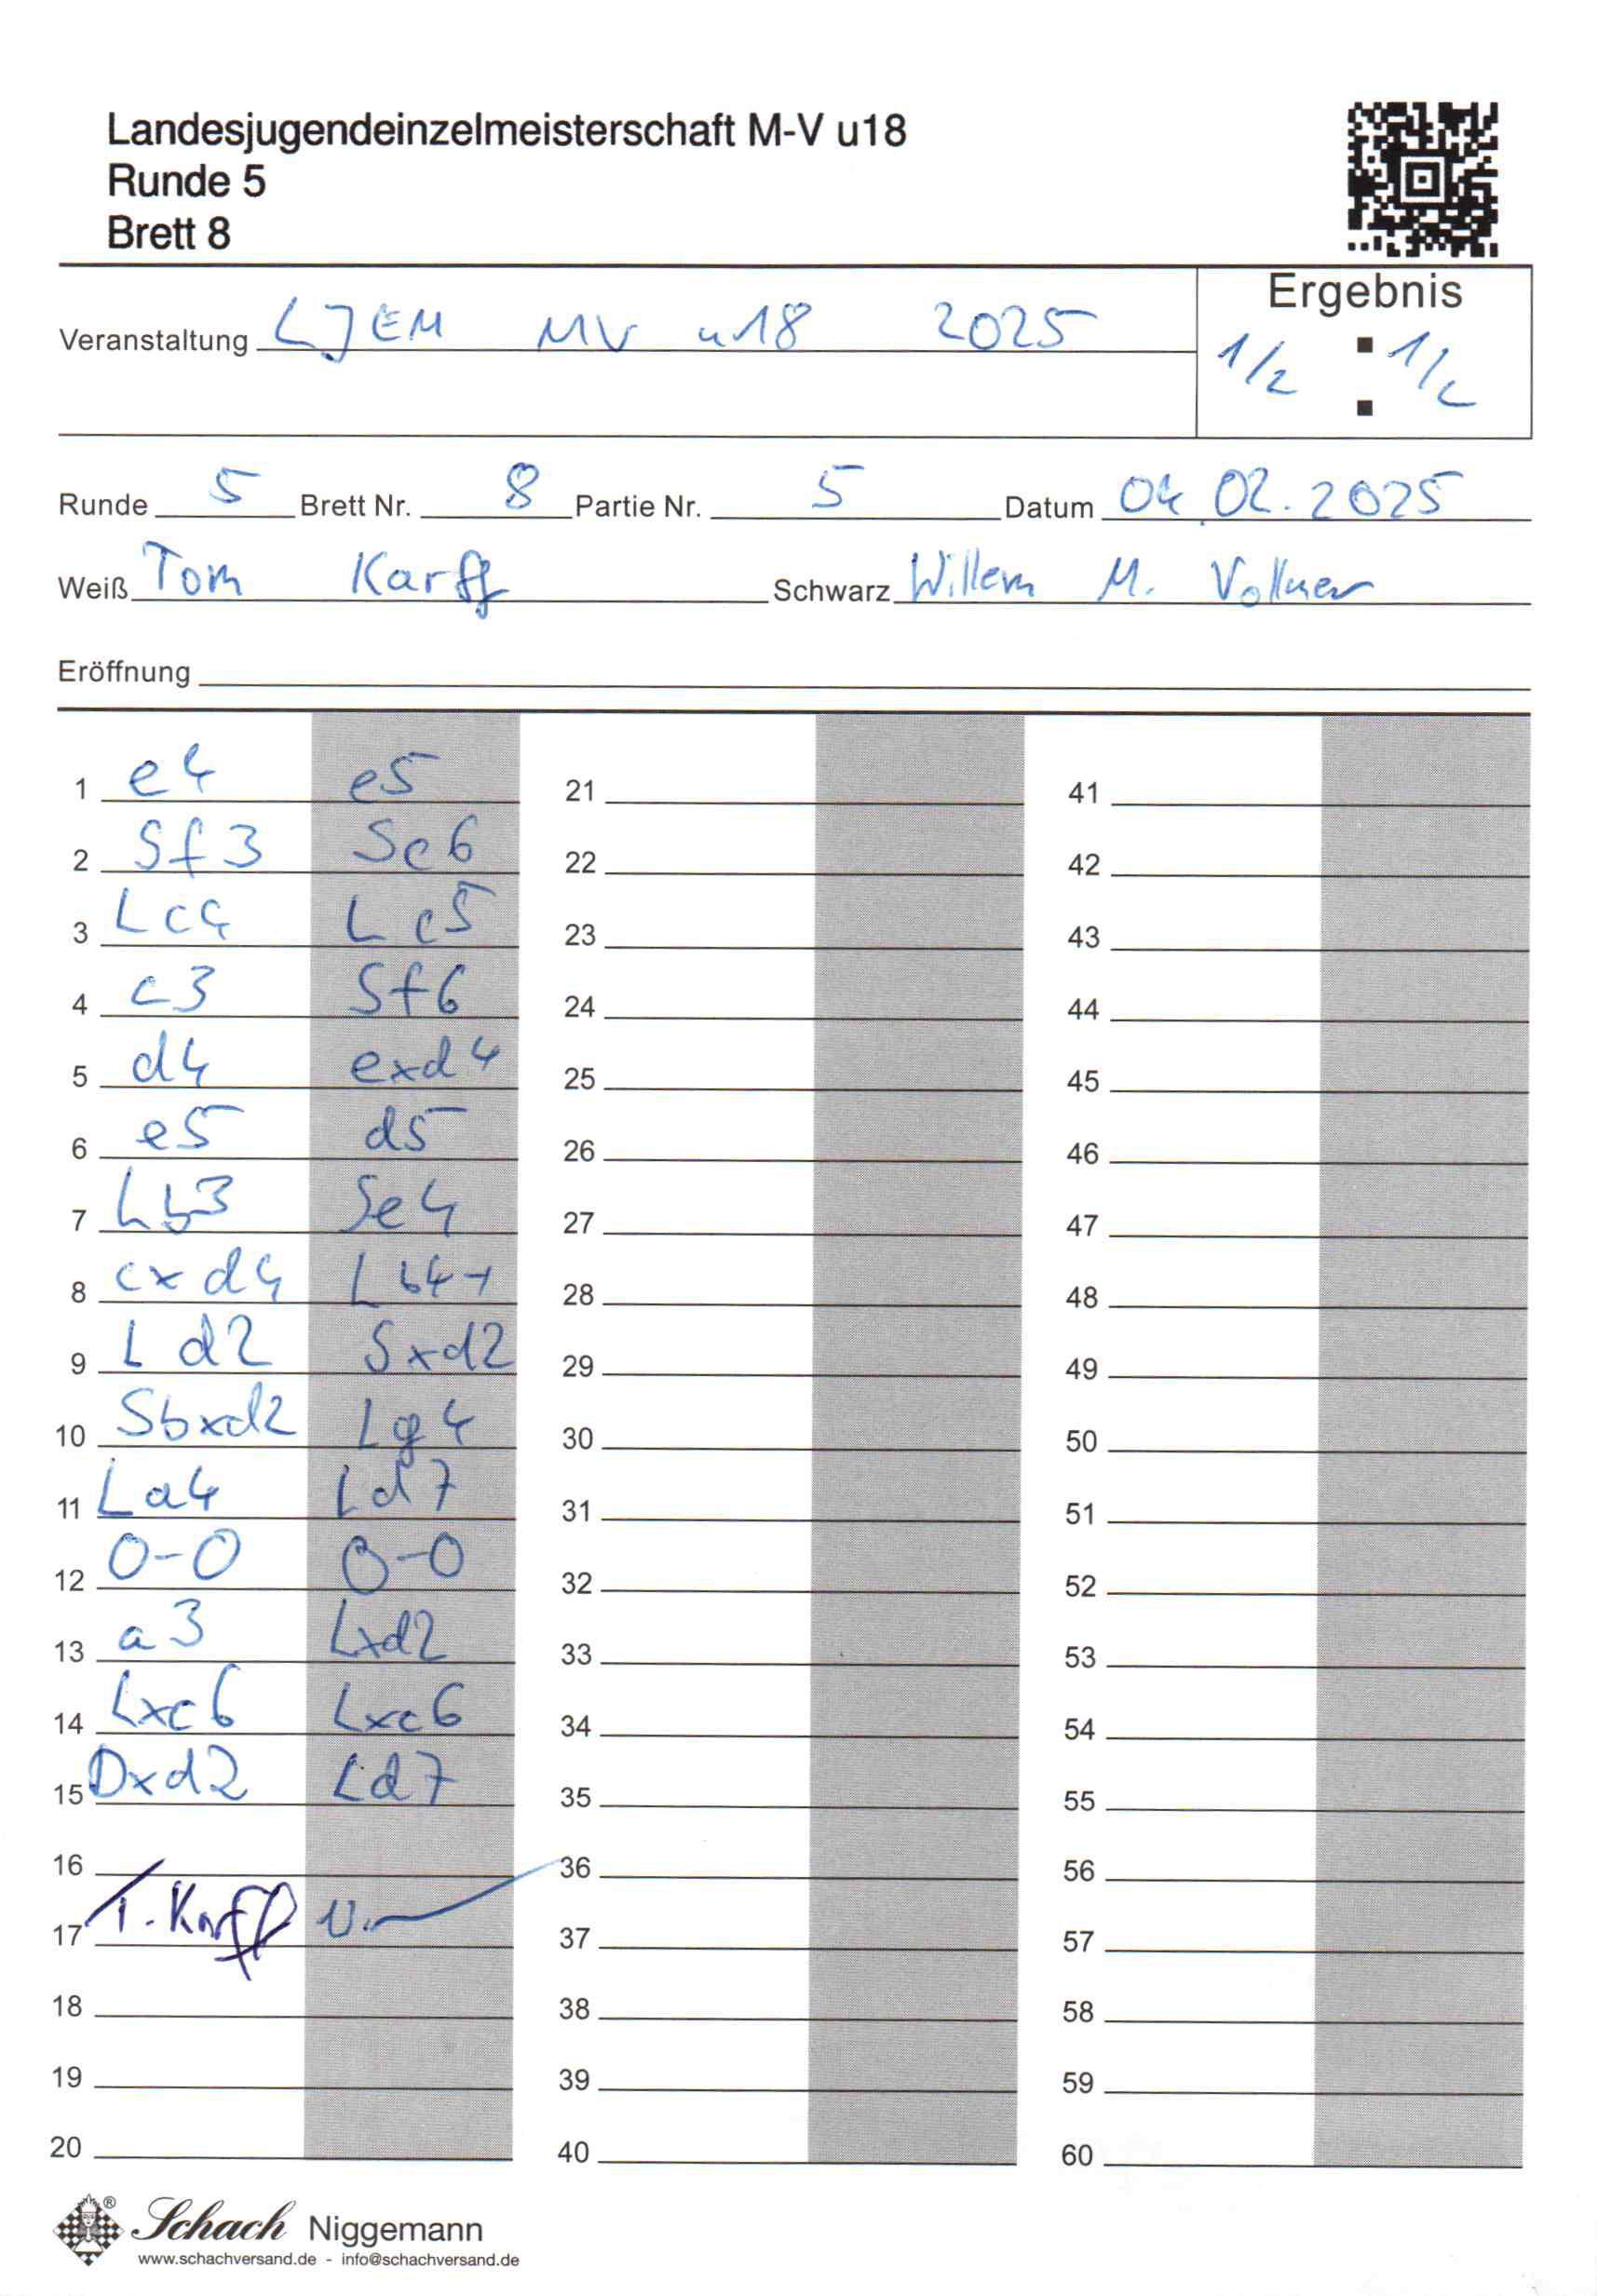 Landesjugendeinzelmeisterschaft M-V u18
Runde 5
Brett 8
Ergebnis
Veranstaltung LJEM MV u18 2025
1/2 : 1/2
Runde 5 Brett Nr. 8 Partie Nr. 5 Datum 04.02.2025
Weiß Tom Karff Schwarz Willem M. Vollmer
Eröffnung
1 e4 e5 21 41
2 Sf3 Sc6 22 42
3 Lc4 Lc5 23 43
4 c3 Sf6 24 44
5 d4 exd4 25 45
6 e5 d5 26 46
7 Lb3 Se4 27 47
8 cxd4 Lb4+ 28 48
9 Ld2 Sxd2 29 49
10 Sbxd2 Lg4 30 50
11 La4 Ld7 31 51
12 0-0 0-0 32 52
13 a3 Lxd2 33 53
14 Lxc6 Lxc6 34 54
15 Dxd2 Ld7 35 55
16 36 56
17 T. Karff 37 57
18 38 58
19 39 59
20 40 60
® Schach Niggemann
www.schachversand.de - info@schachversand.de